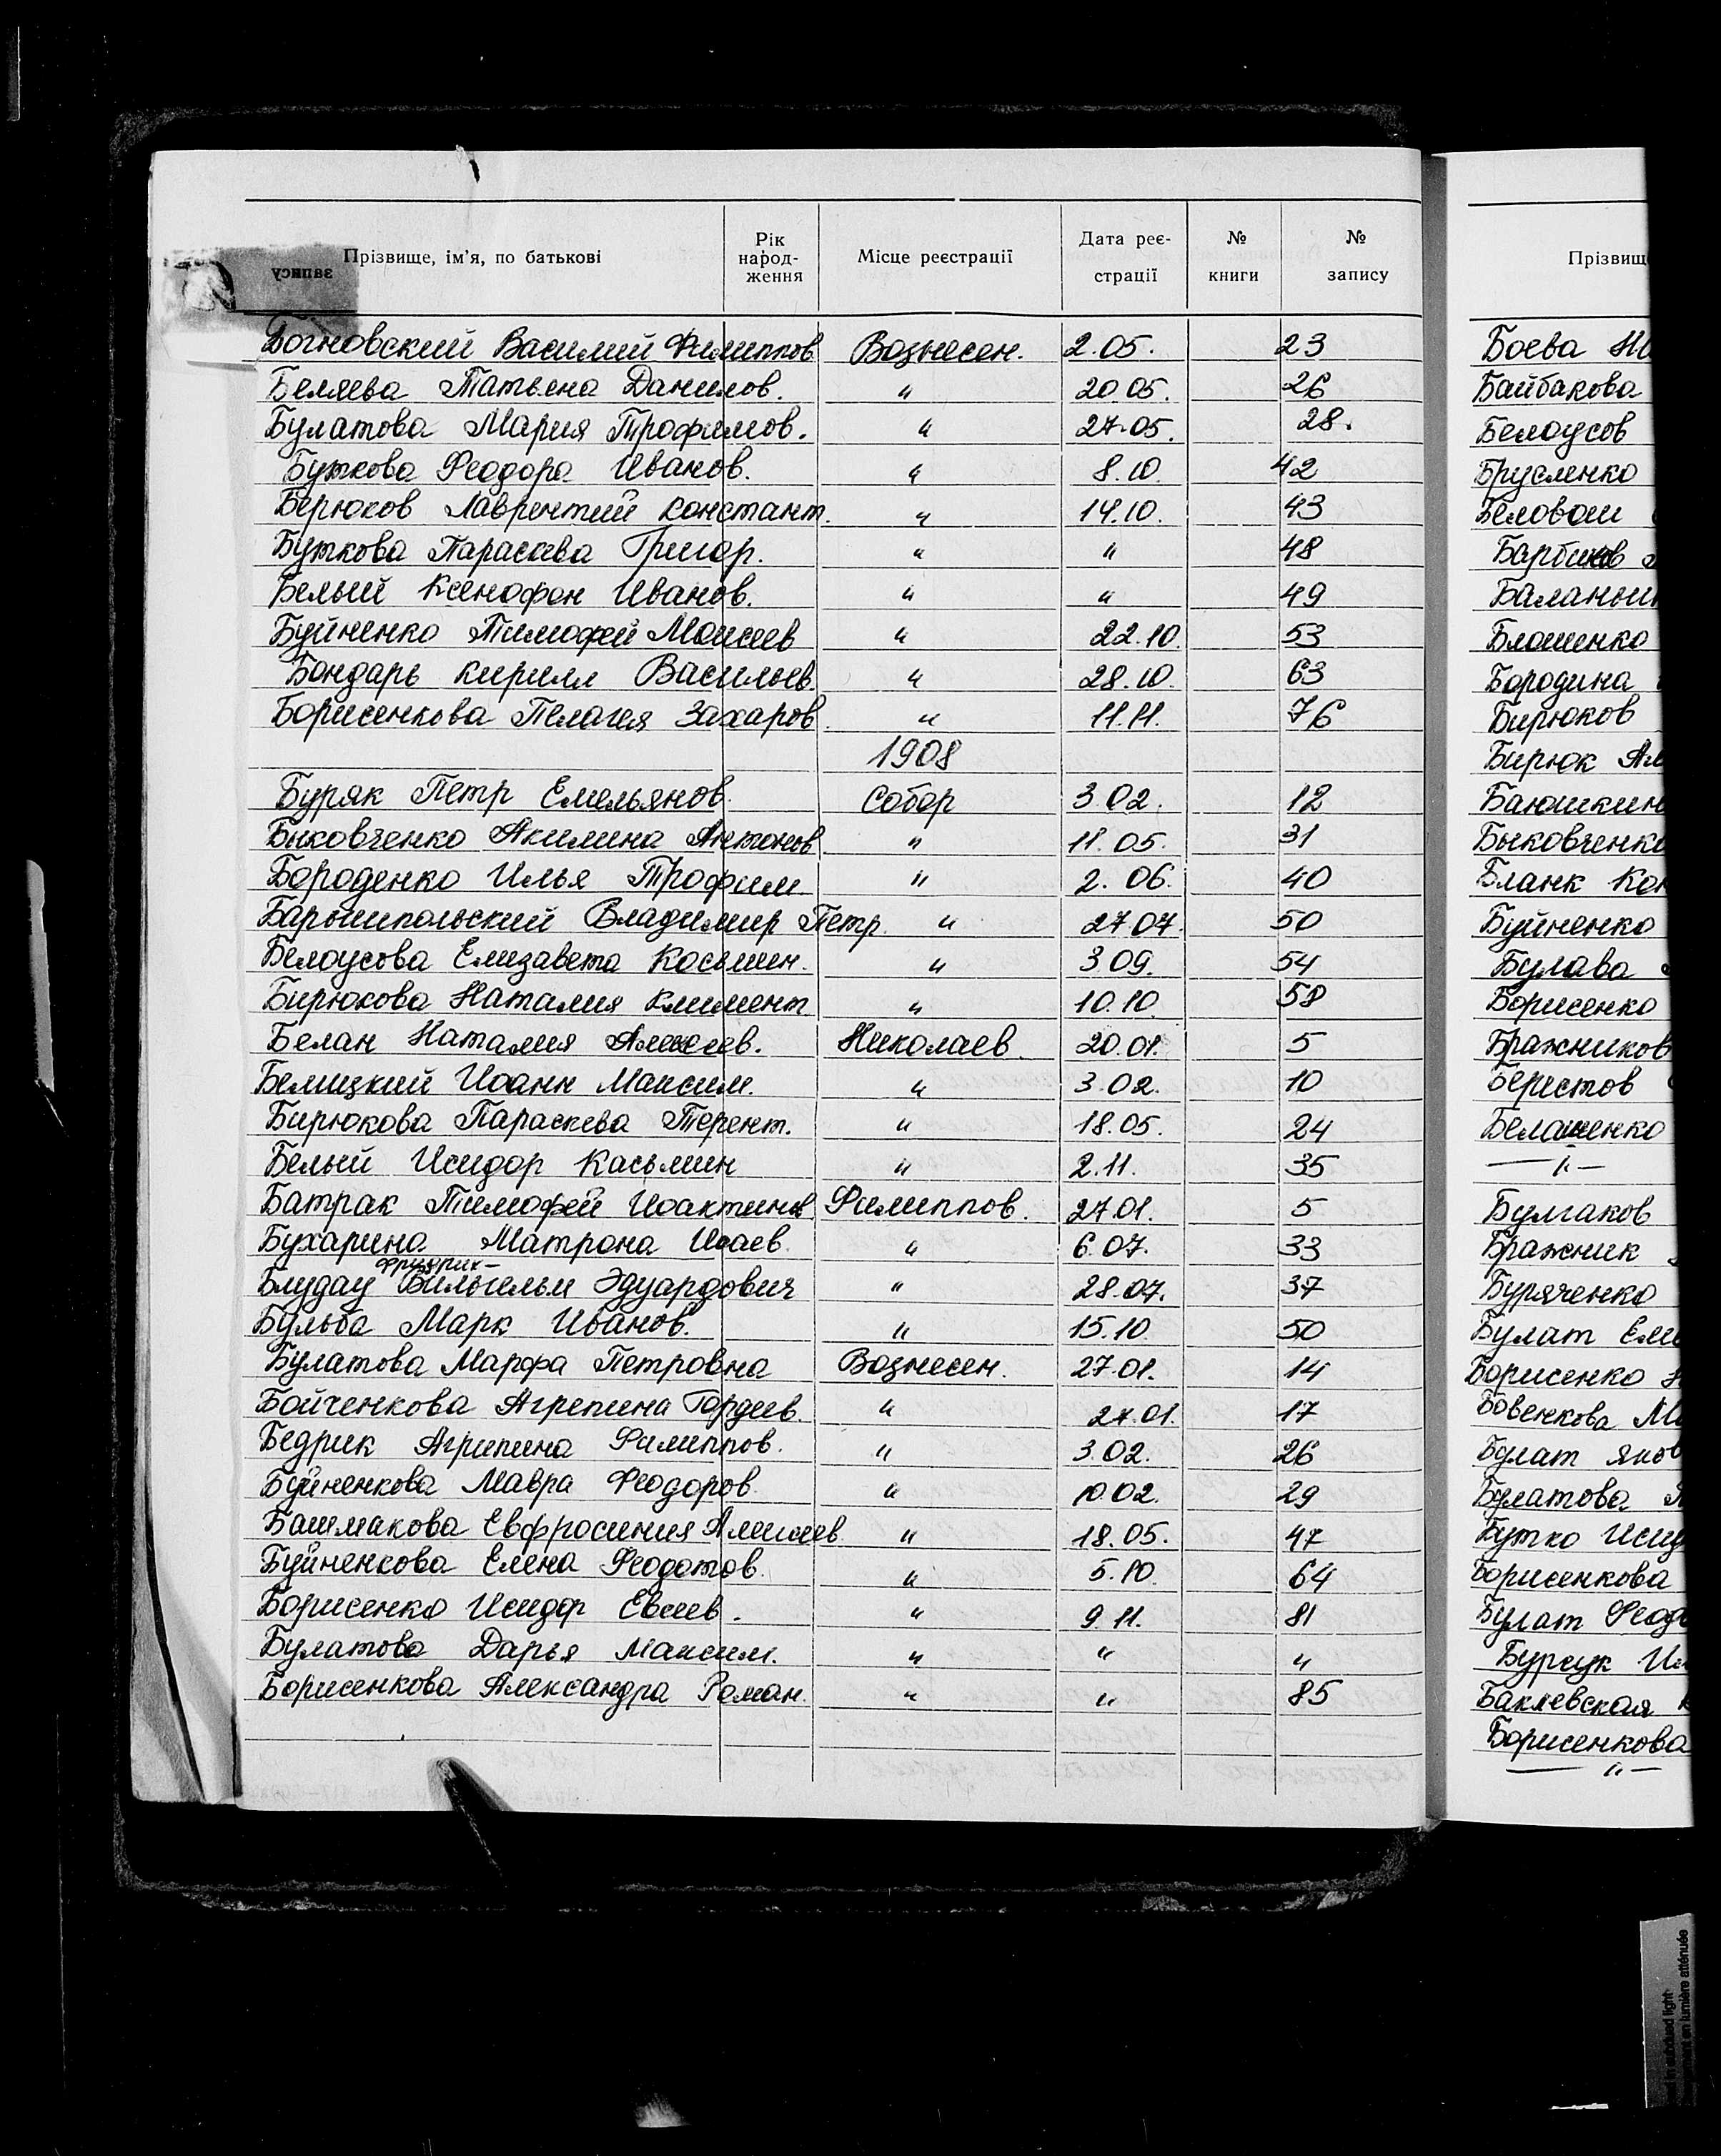 Прізвище, ім'я, по батькові Рік народ-ження Місце реєстрації Дата реє-страції № книги № запису
запису
Вознесен. 2.05. 23
Беляева Татьяна Данилов. " 20.05. 26
Булатова Мария Трофимов. " 27.05. 28.
Буткова Феодора Иванов. " 8.10. 42
Берюков Лаврентий Констант. " 14.10. 43
Буткова Параскева Григор. " " 48
Белый Ксенофон Иванов. " " 49
Буйненко Тимофей Моисеев " 22.10. 53
Бондарь Кирилл Васильев. " 28.10. 63
Борисенкова Пелагея Захаров. " 11.11. 76
1908
Буряк Петр Емельянов. Собор 3.02. 12
Быковченко Акилина Антонов. " 11.05. 31
Бороденко Илья Трофим. " 2.06. 40
Барышпольский Владимир Петр. " 27.07. 50
Белоусова Елизавета Косьмин. " 3.09. 54
Бирюкова Наталия Климент. " 10.10. 58
Белан Наталия Алексеев. Николаев. 20.01. 5
Белицкий Иоанн Максим. " 3.02. 10
Бирюкова Параскева Терент. " 18.05. 24
Белый Исидор Касьмин " 2.11. 35
Батрак Тимофей Филиппов. 27.01. 5
Бухарина Матрона Исаев. " 6.07. 33
Фридрих-
Блудау Вильгельм Эдуардович " 28.07. 37
Бульба Марк Иванов. " 15.10. 50
Булатова Марфа Петровна Вознесен. 27.01. 14
Бойченкова Агрепина Гордеев. " 27.01. 17
Бедрик Агрипина Филиппов. " 3.02. 26
Буйненкова Мавра Феодоров. " 10.02. 29
Башмакова Евфросиния Алексеев. " 18.05. 47
Буйненкова Елена Феодотов. " 5.10. 64
Борисенко Исидор Евсеев. " 9.11. 81
Булатова Дарья Максим. " " "
Борисенкова Александра Роман. " " 85
Прізвищ
Боева
Байбакова
Белоусов
Брусленко
Барбинов
Бородина
Бирюков
Бирюк
Быковченко
Бланк
Буйненко
Булава
Борисенко
Бражников
Берестов
Белашенко
—"—
Булгаков
Бражник
Буряченко
Булат
Борисенко
Бовенкова
Булат
Булатова
Бутко
Борисенкова
Булат
Бурсук
Баклевская
Борисенкова
—"—